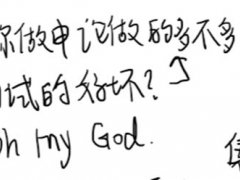 你做申论做的多不多
试的好坏？
oh my God.